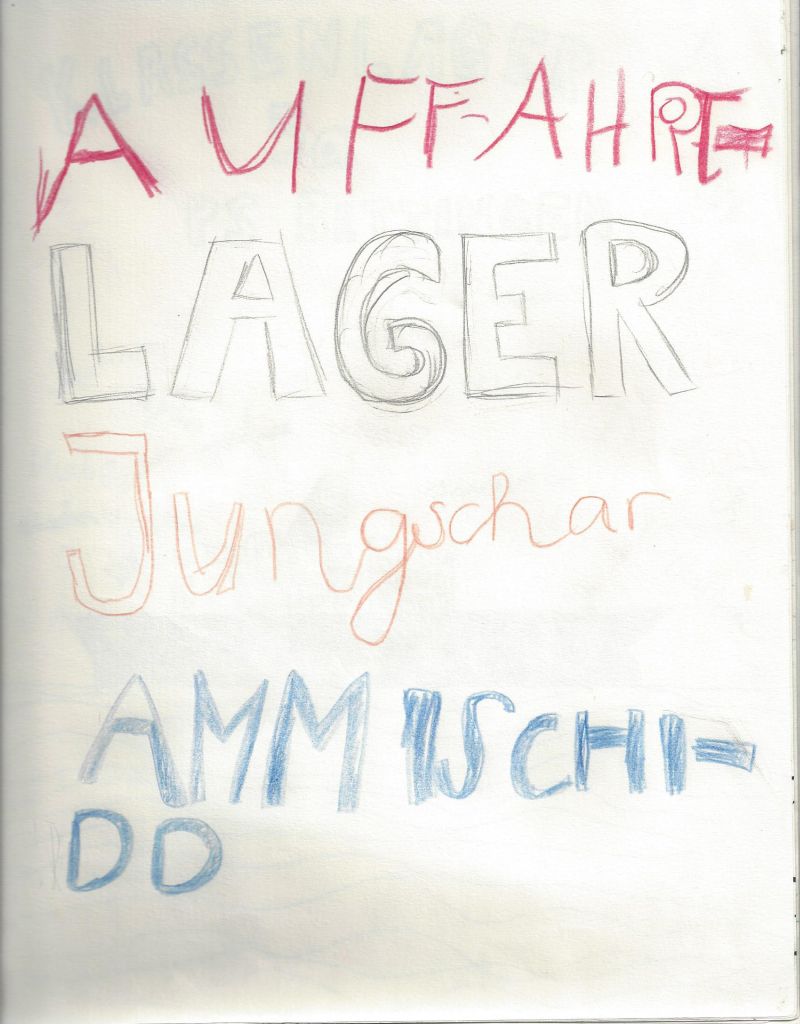 AUFFAHRT-
LAGER
Jungschar
AMMISCHI-
DD